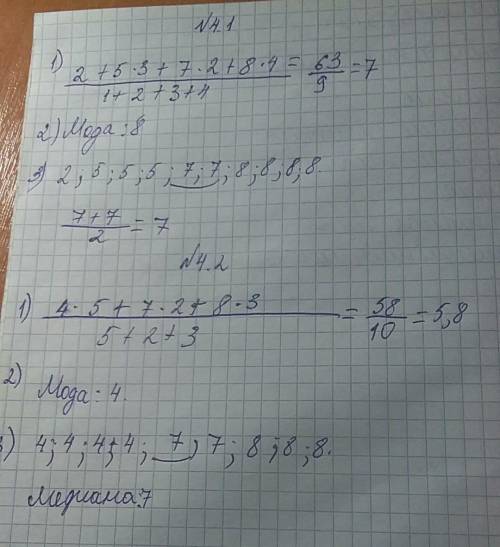 №4.1
1) 2+5·3+7·2+8·4 / 1+2+3+4 = 63/9 = 7
2) Мода: 8
3) 2; 5; 5; 5; 7; 7; 8; 8; 8; 8.
7+7 / 2 = 7
№4.2
1) 4·5+7·2+8·3 / 5+2+3 = 58/10 = 5,8
2) Мода: 4.
) 4; 4; 4; 4; 7; 7; 8; 8; 8.
Медиана: 7